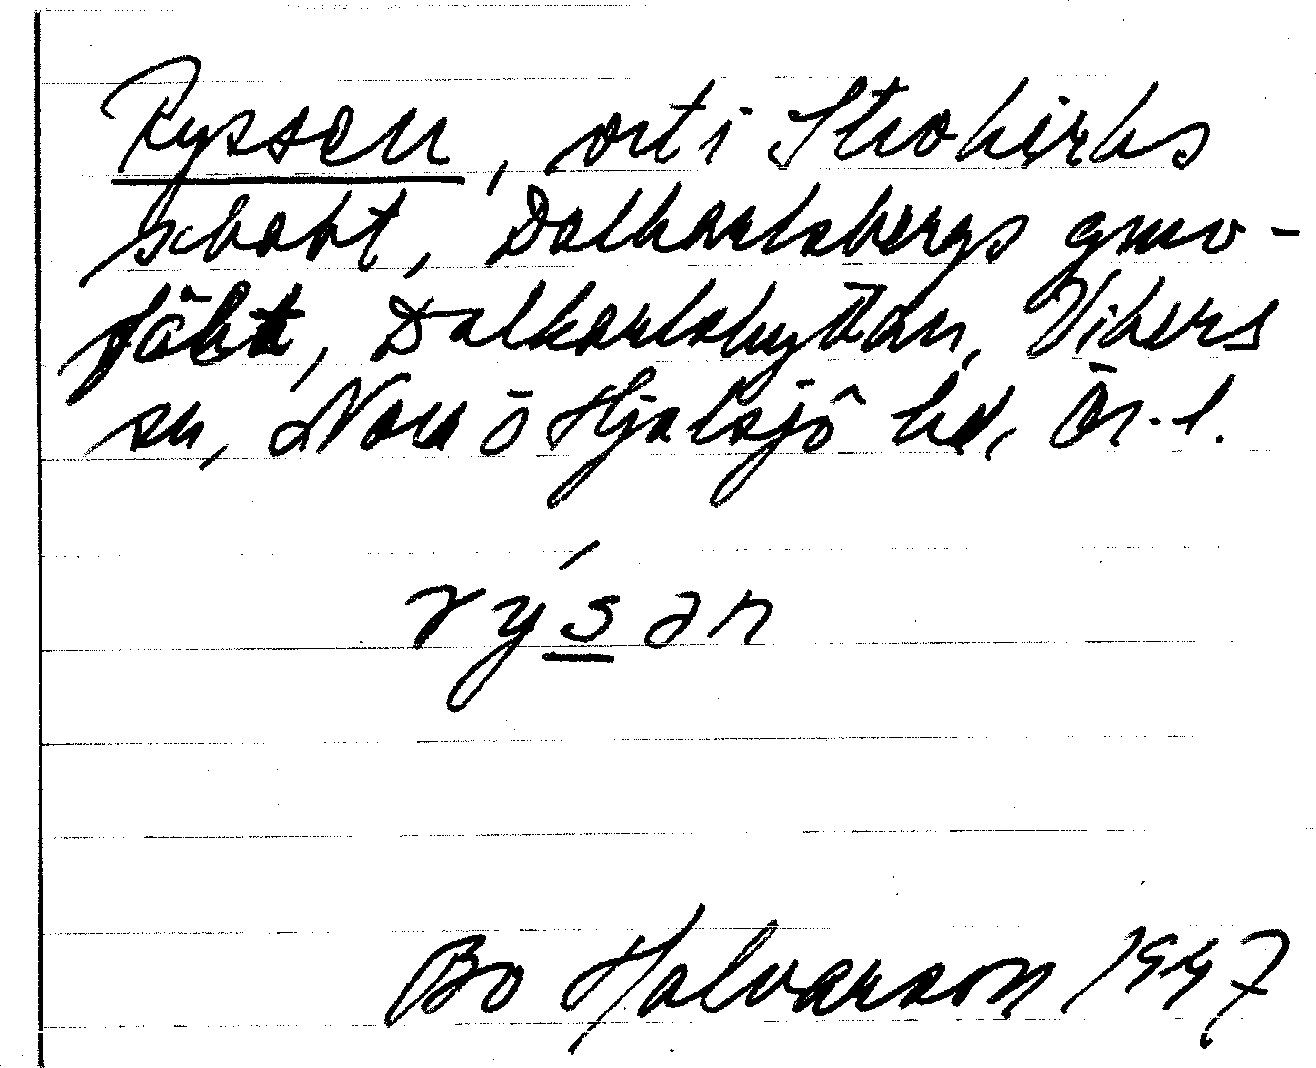 Ryssen, ort i Strokirks
schakt, Dalkarlsbergs gruv-
fält, Dalkarlshyttan, Vikers
sn, Nora o Hjulsjö hd, Ör. l.
rýsən
Bo Halvarson 1947